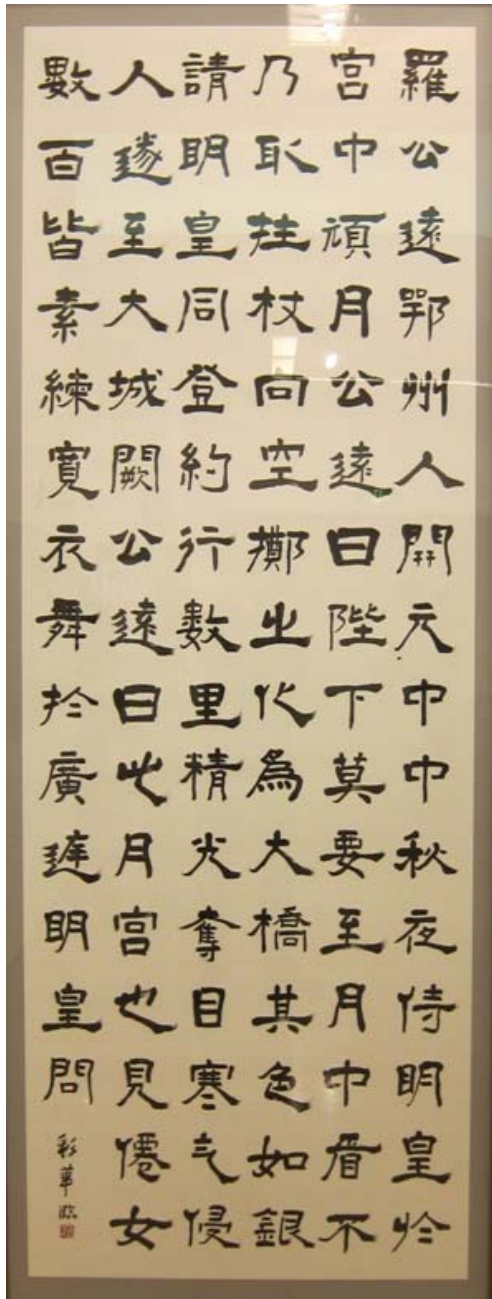 羅公遠鄂州人開元中中秋夜侍明皇於
宮中頑月公遠曰陛下莫要至月中看不
乃取拄杖向空擲之化為大橋其色如銀
請明皇同登約行數里精光奪目寒气侵
人遂至大城闕公遠曰此月宮也見僊女
數百皆素練寬衣舞於廣庭明皇問
彩華臨